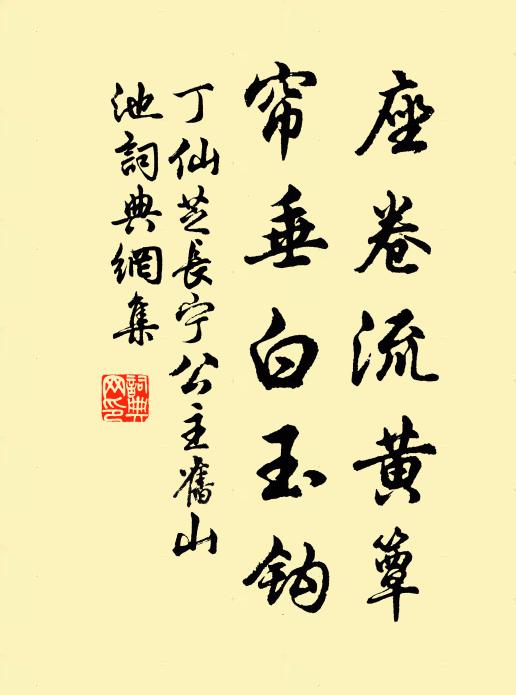 座卷流黄簟
帘垂白玉钩
丁仙芝長宁公主舊山
池詞典網集
詞典
网印